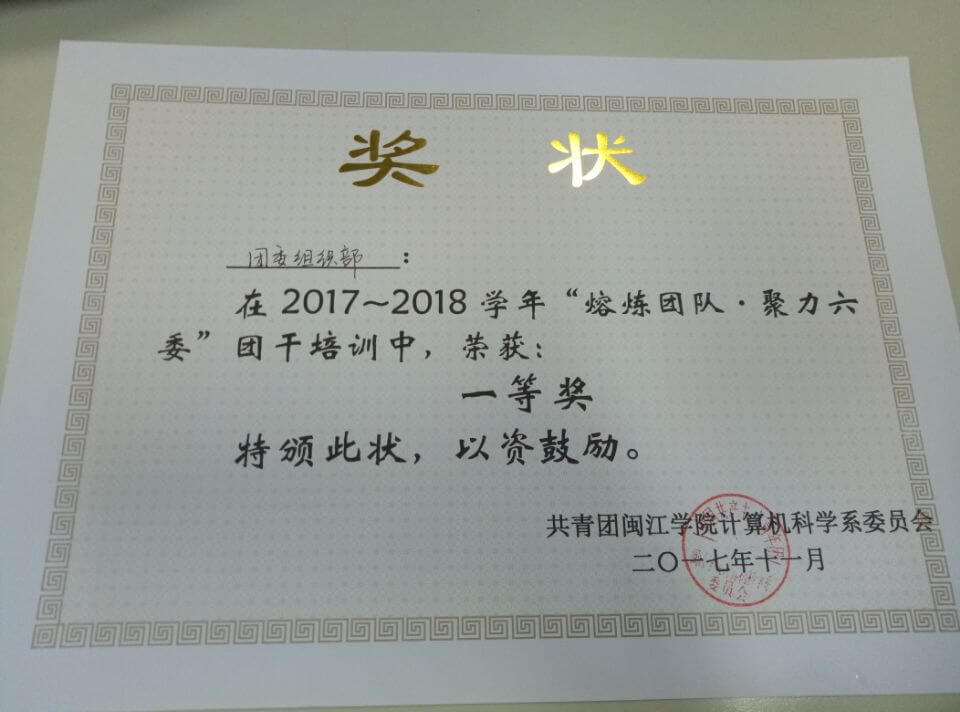 奖 状
团委组织部：
在 2017～2018 学年“熔炼团队·聚力六
委”团干培训中，荣获：
一等奖
特颁此状，以资鼓励。
共青团闽江学院计算机科学系委员会
二〇一七年十一月
委员会